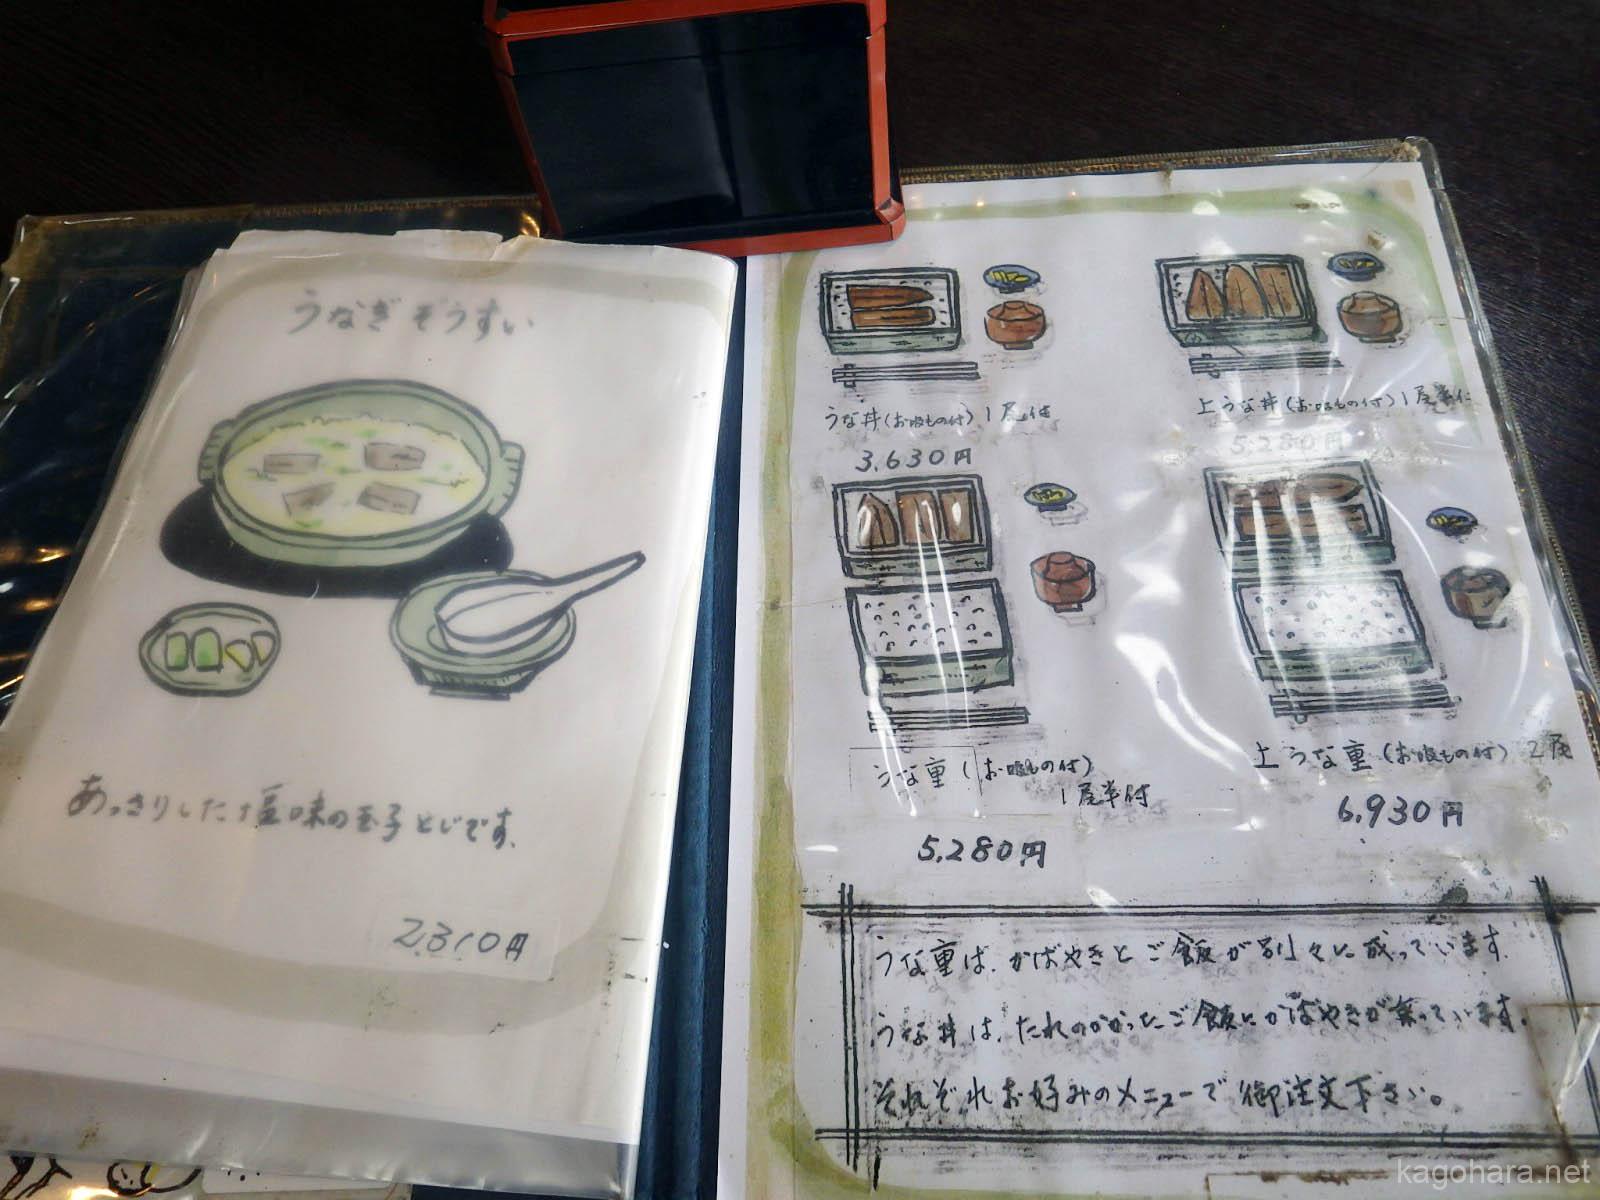 うなぎぞうすい
あっさりした塩味の玉子とじです。
2,310円
うな丼(お吸もの付)1尾付
3,630円
上うな丼(お吸もの付)1尾半付
5,280円
うな重(お吸もの付)
1尾半付
5,280円
上うな重(お吸もの付)2尾
6,930円
うな重は、かばやきとご飯が別々に成っています。
うな丼は、たれのかかったご飯にかばやきが乗っています。
それぞれお好みのメニューで御注文下さい。
kagohara.net